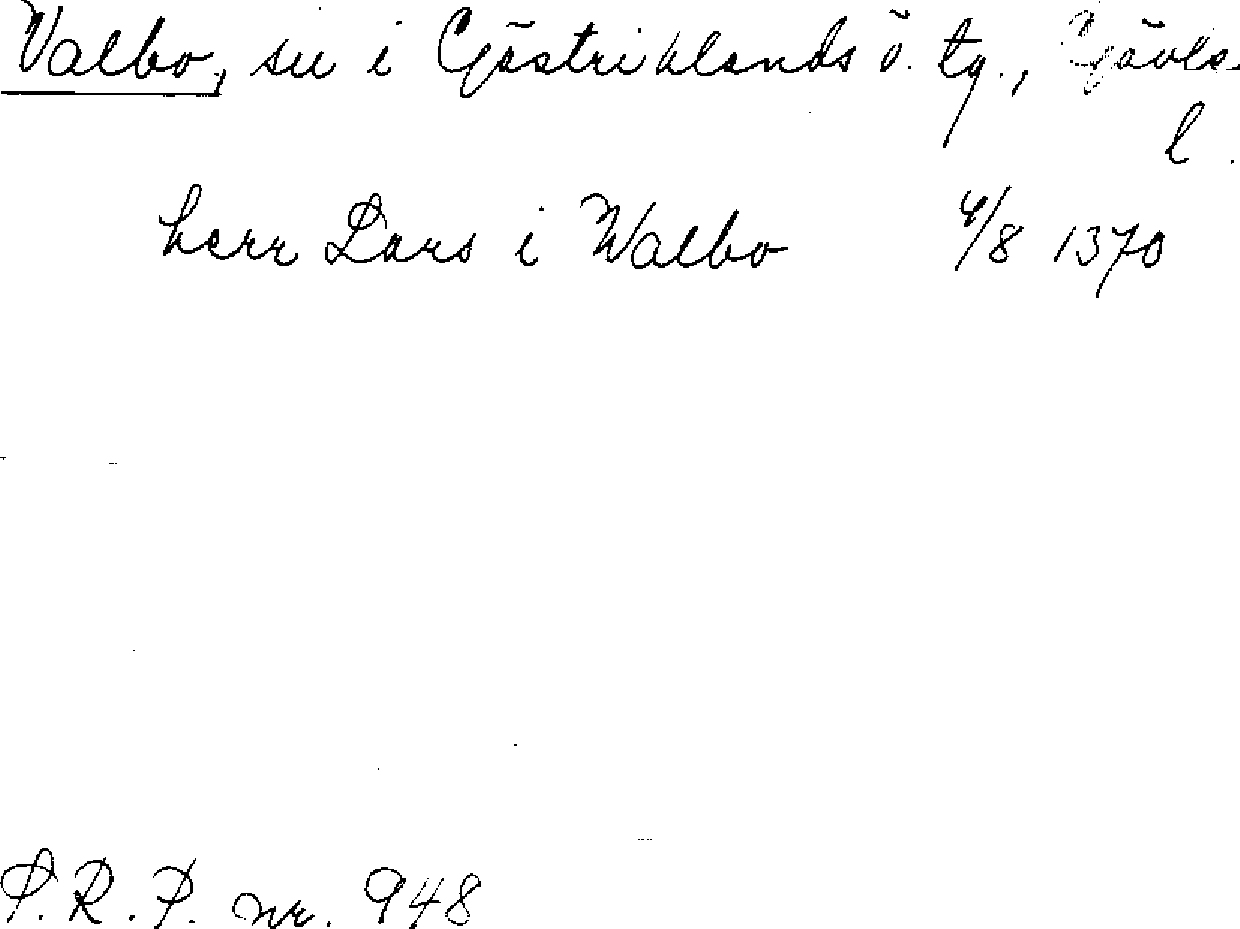 Valbo, sn i Gästriklands ö. tg., Gävle.
l.
herr Lars i Walbo 4/8 1370
S.R.P. nr. 948